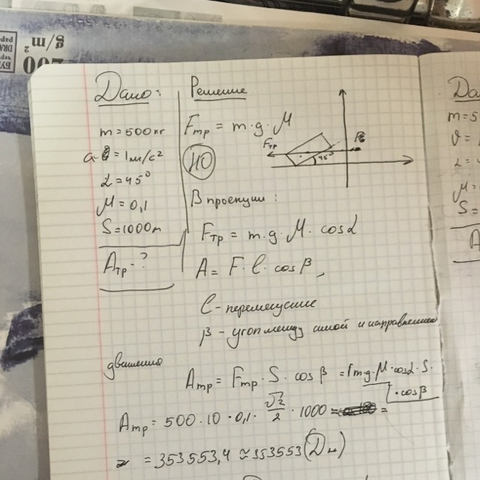 g/m²
200
Дано:
m = 500 кг
a = 1 м/с²
α = 45°
μ = 0,1
S = 1000 м
Aтр - ?
Решение
Fтр = m·g·μ
НО
Fтр
45°
В проекции:
Fтр = m·g·μ·cosα
A = F·l·cosβ,
l - перемещение
β - угол между силой и направлением
движения
Aтр = Fтр·S·cosβ = m·g·μ·cosα·S·
·cosβ
Aтр = 500·10·0,1·√2/2·1000 =
= 353553,4 ≈ 353553 (Дж)
Da
m=5
α=
μ=
S=